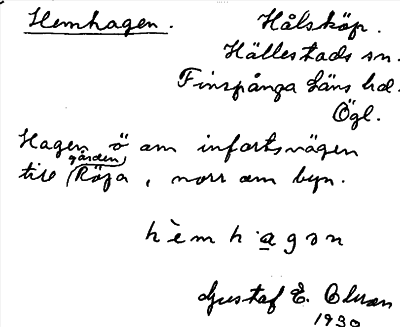 Hemhagen.
Hålsköp.
Hällestads sn.
Finspånga läns hd.
Ögl.
Hagen ö om infartsvägen
gården
till Röja, norr om byn.
hèmh·agon
Gustaf E. Olsson
1930